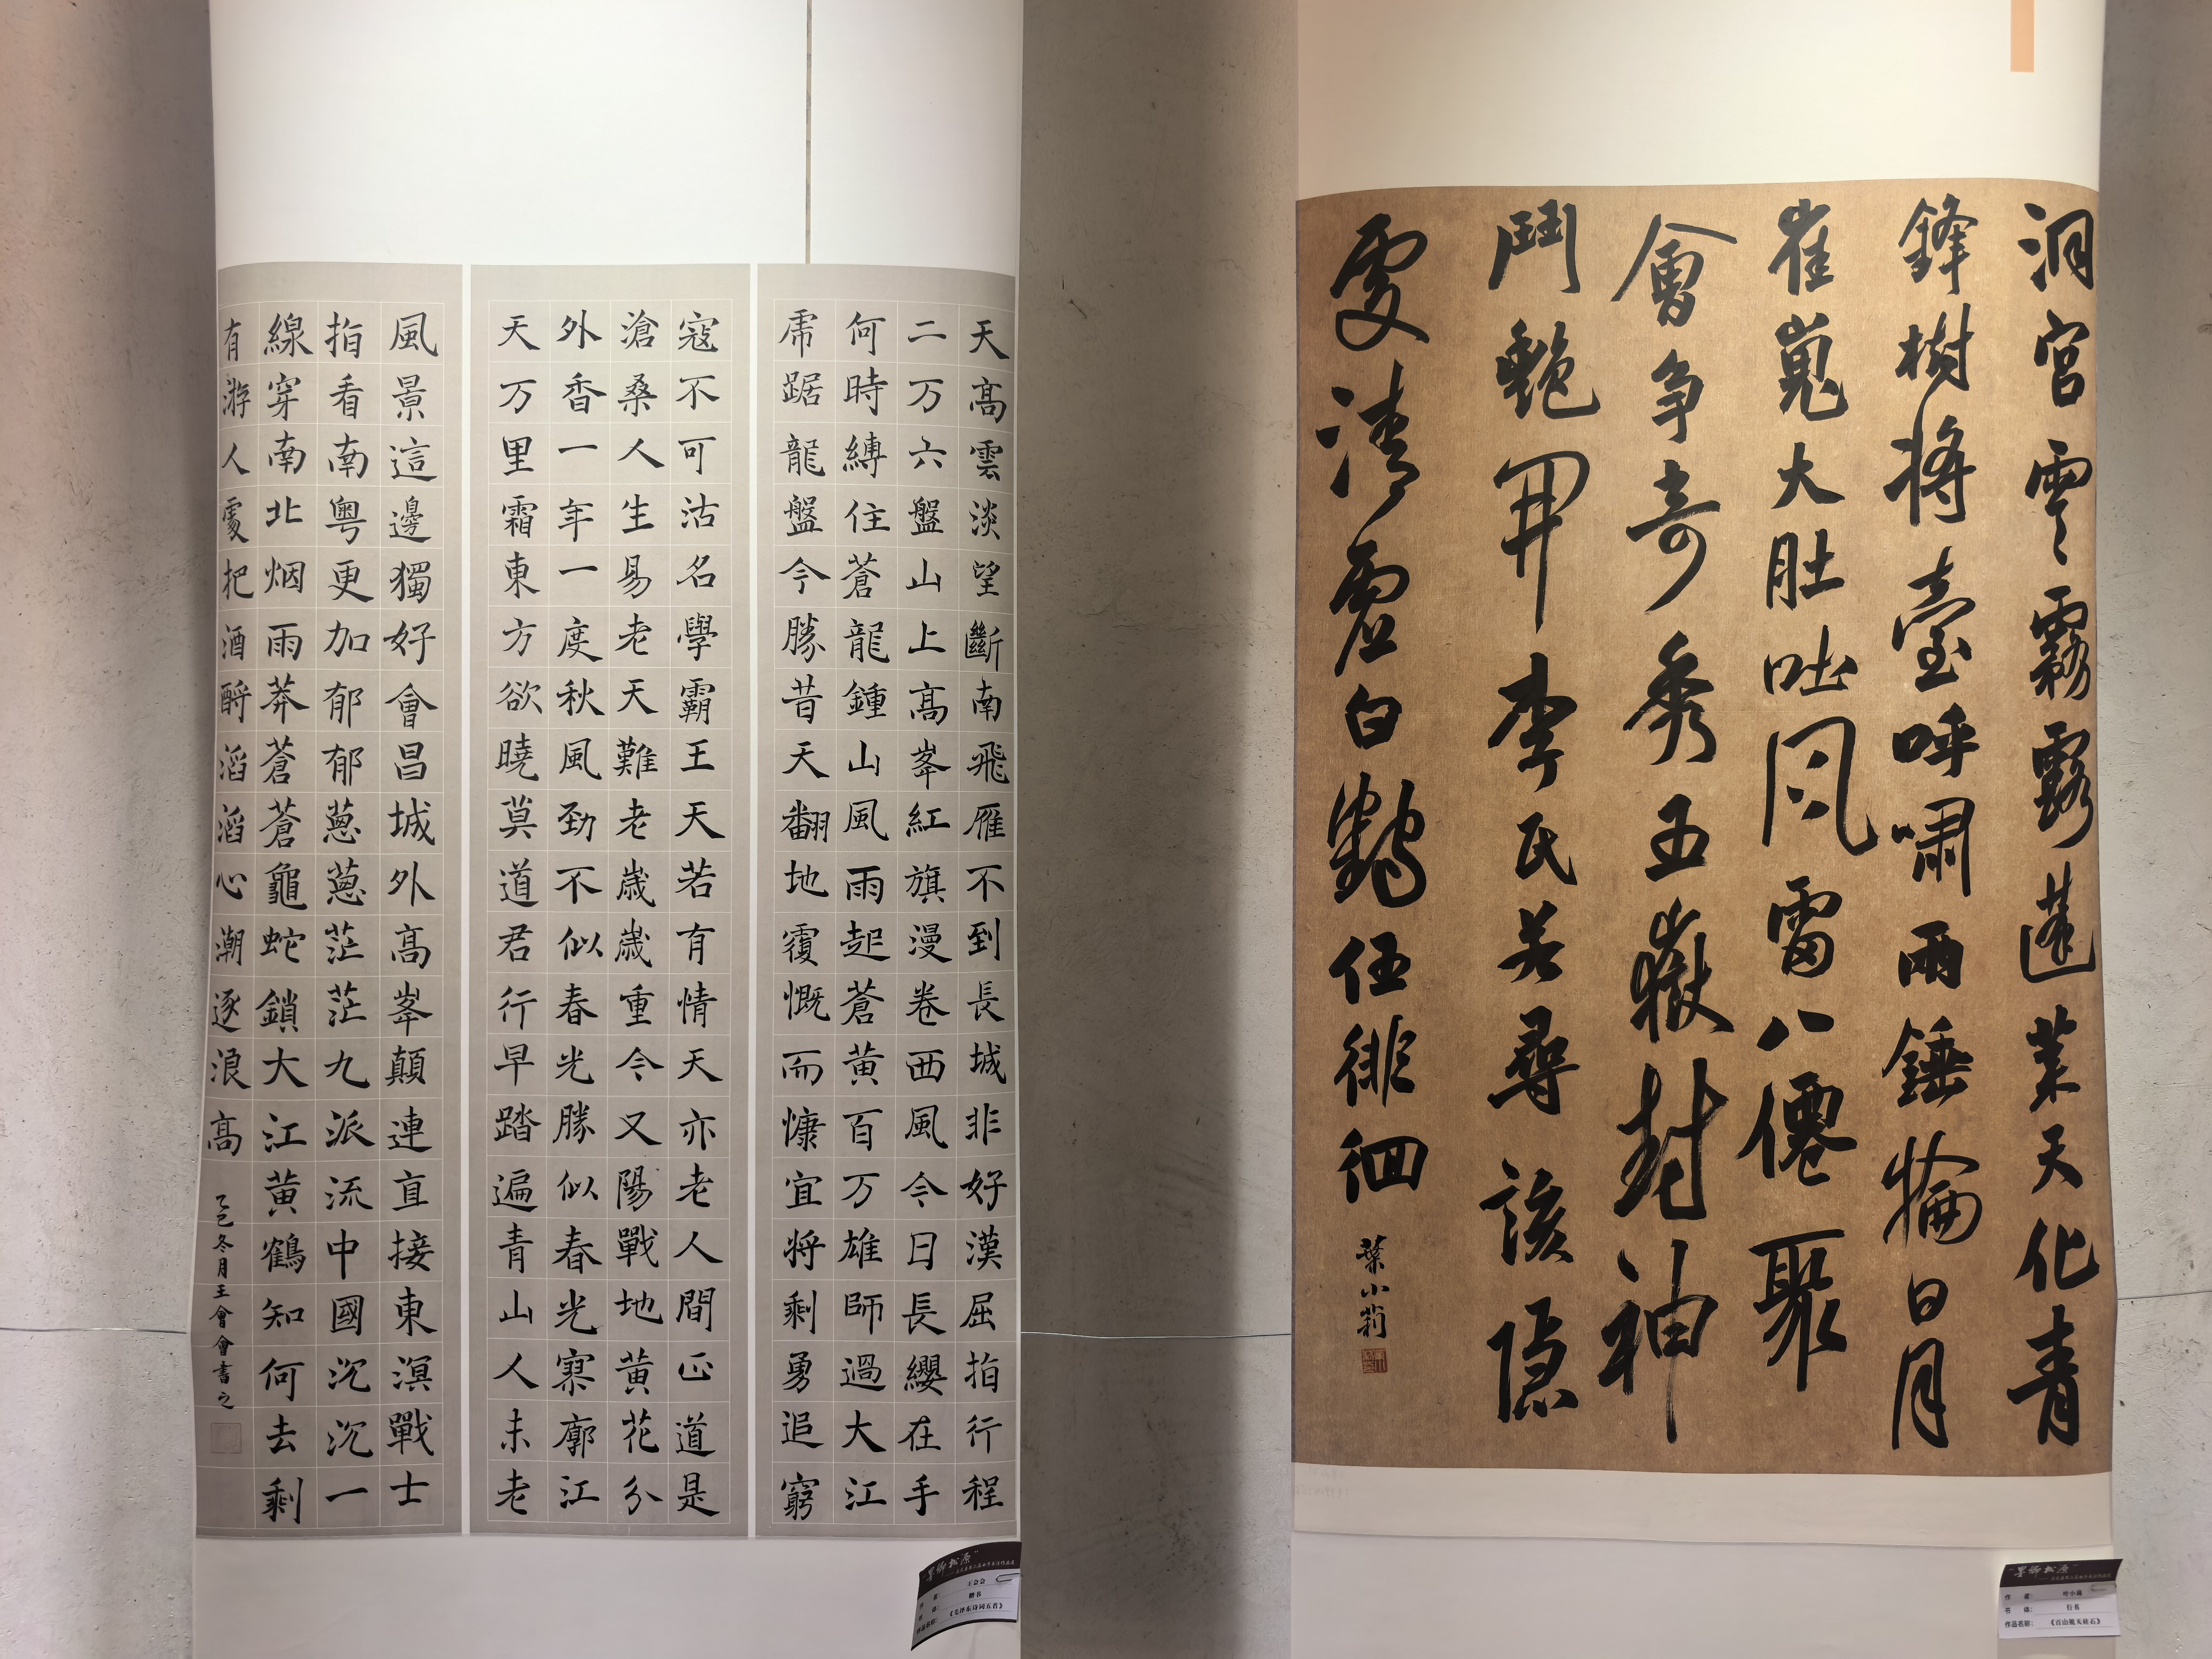 洞宮雲霧露蓬萊天化青
鋒樹將臺呼嘯雨錘掄日月
崔嵬大肚吐風雷八僊聚
會爭奇秀五嶽封神
鬥艷開李氏若尋該隱
處清虛白鶴伍徘徊
葉小莉
天高雲淡望斷南飛雁不到長城非好漢屈指行程
二万六盤山上高峯紅旗漫卷西風今日長纓在手
何時縛住蒼龍鍾山風雨起蒼黃百万雄師過大江
虎踞龍盤今勝昔天翻地覆慨而慷宜將剩勇追窮
寇不可沽名學霸王天若有情天亦老人間正道是
滄桑人生易老天難老歲歲重今又陽戰地黃花分
外香一年一度秋風勁不似春光勝似春光寥廓江
天万里霜東方欲曉莫道君行早踏遍青山人未老
風景這邊獨好會昌城外高峯顛連直接東溟戰士
指看南粵更加郁郁蔥蔥茫茫九派流中國沉沉一
線穿南北烟雨莽蒼蒼龜蛇鎖大江黃鶴知何去剩
有游人處把酒酹滔滔心潮逐浪高
乙巳冬月王會會書之
墨鄉松源
王会会
楷书
《毛泽东诗词五首》
墨鄉松源
作 者： 叶小莉
书 体： 行书
作品名称：